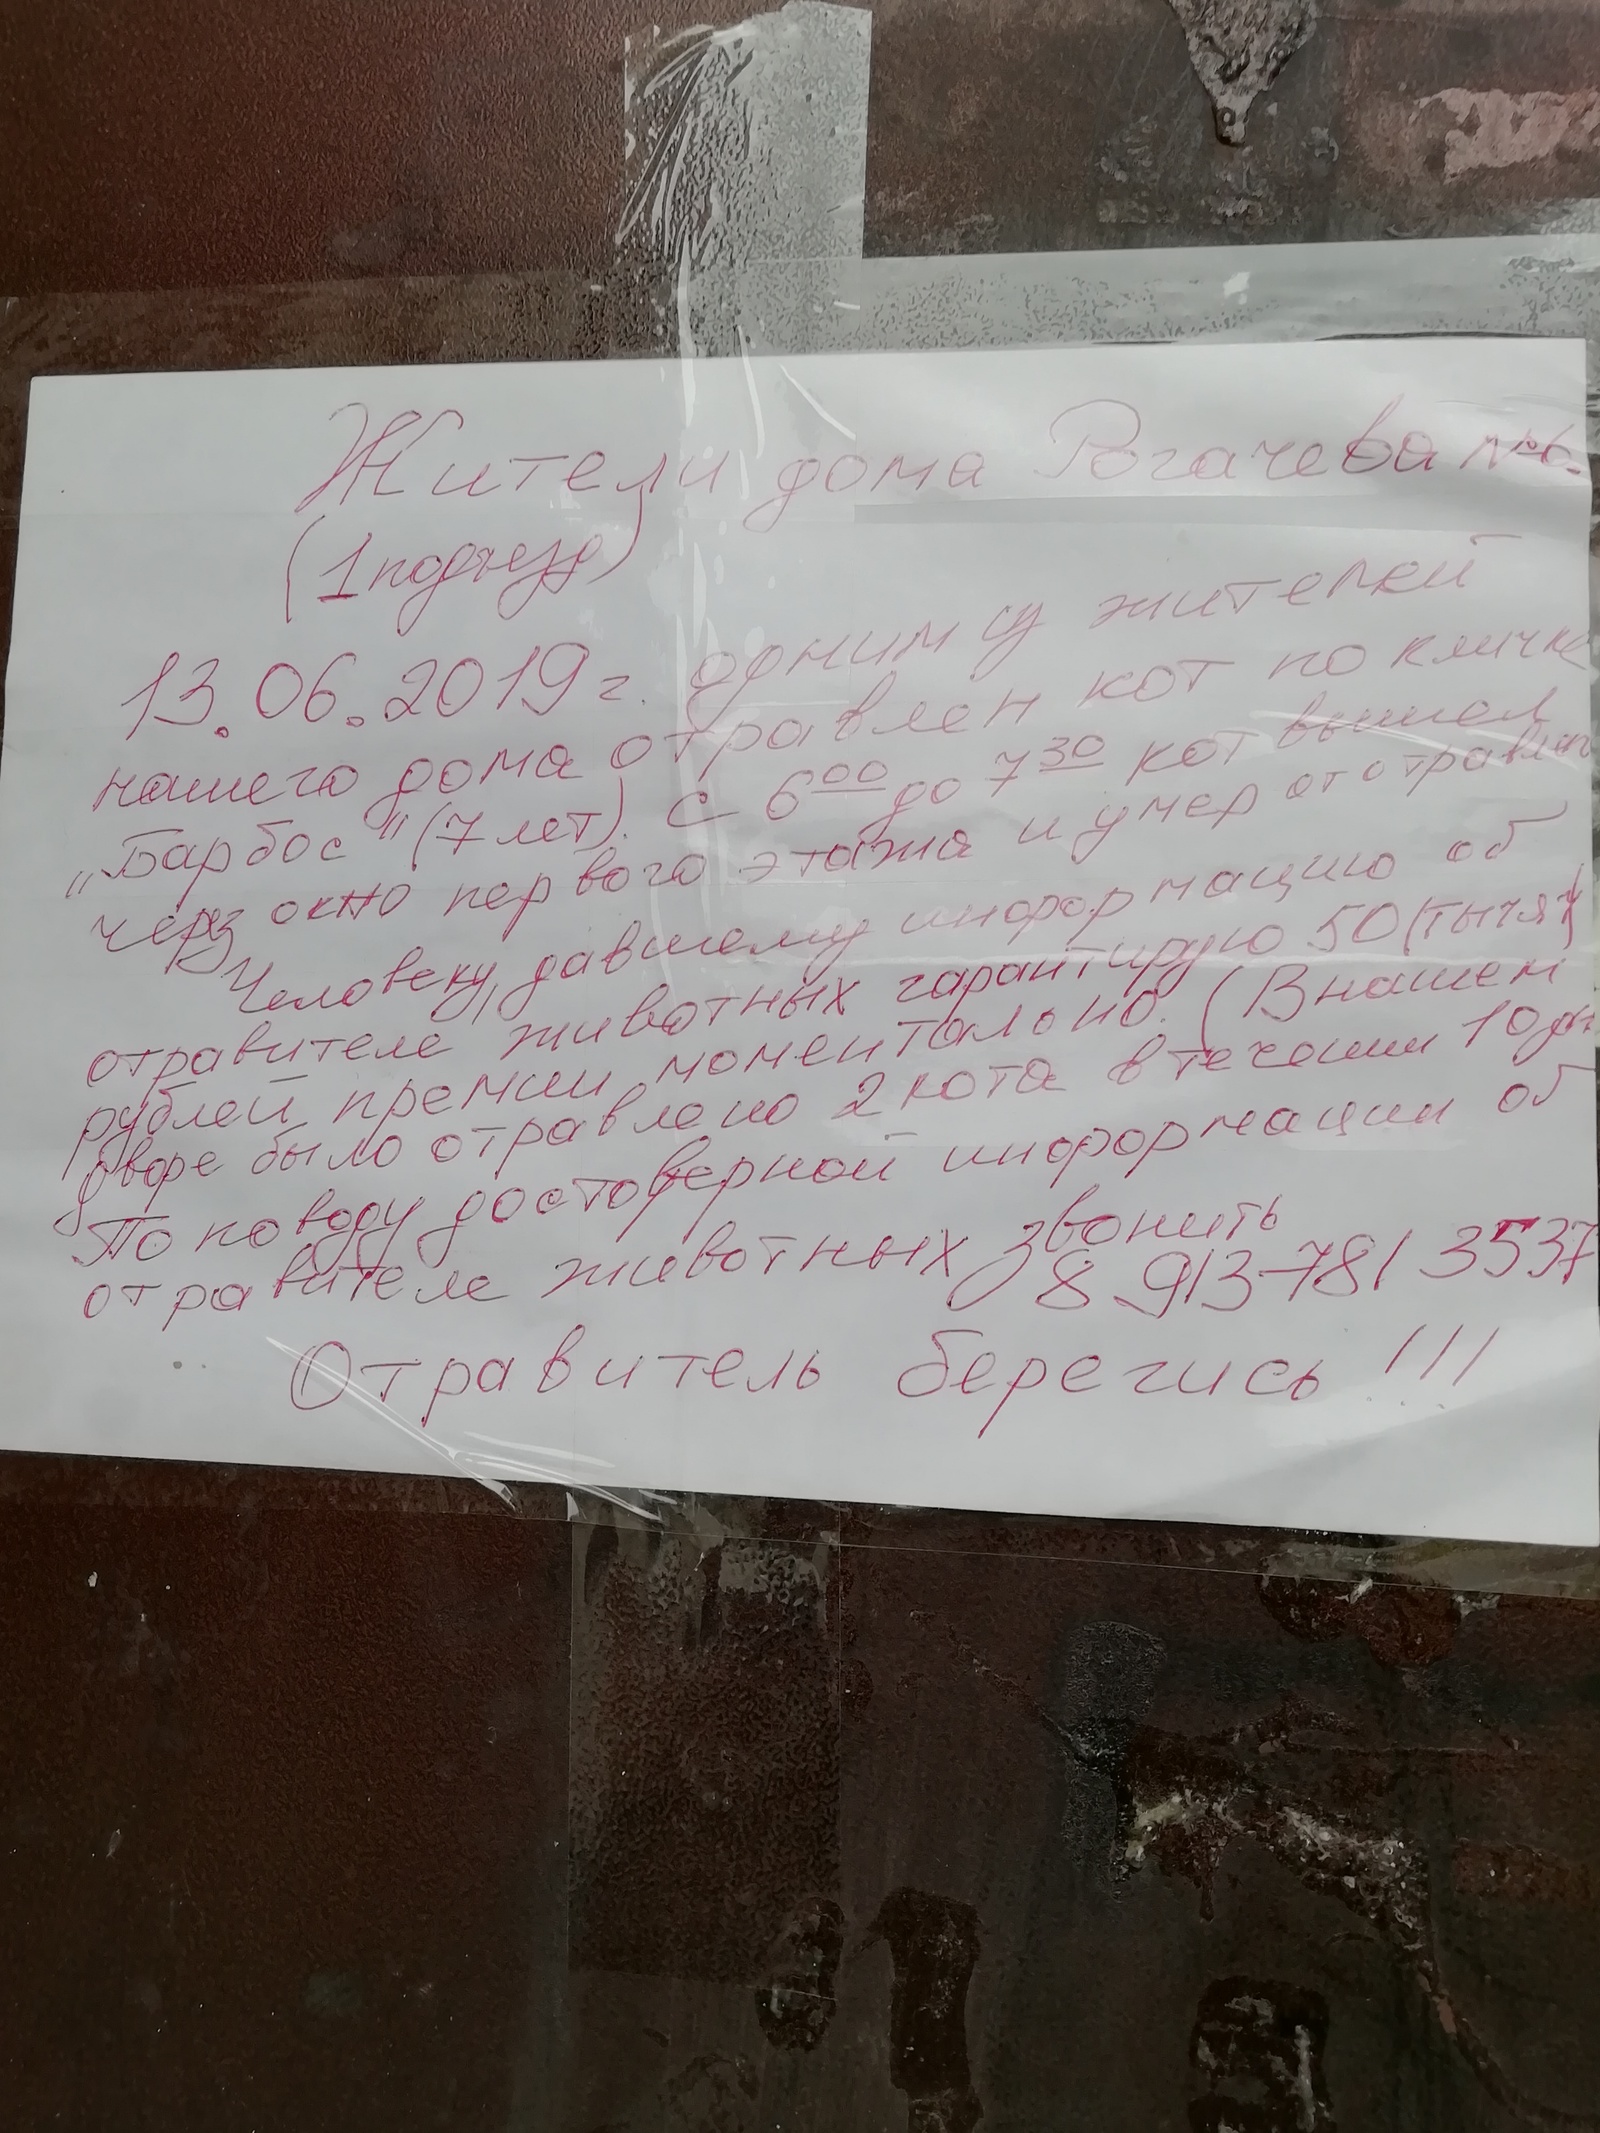 Жители дома Рогачева №6.
(1 подъезд)
13.06.2019г. одним из жителей
нашего дома отравлен кот по кличке
„Барбос" (7 лет). С 6 00 до 7 30 кот вышел
через окно первого этажа и умер от отравлен
Человеку, давшему информацию об
отравителе животных гарантирую 50 (тысяч)
рублей премии моментально. (В нашем
дворе было отравлено 2 кота в течении 10 дн
По поводу достоверной информации об
отравителе животных звонить
8 913 781 3537
Отравитель берегись!!!